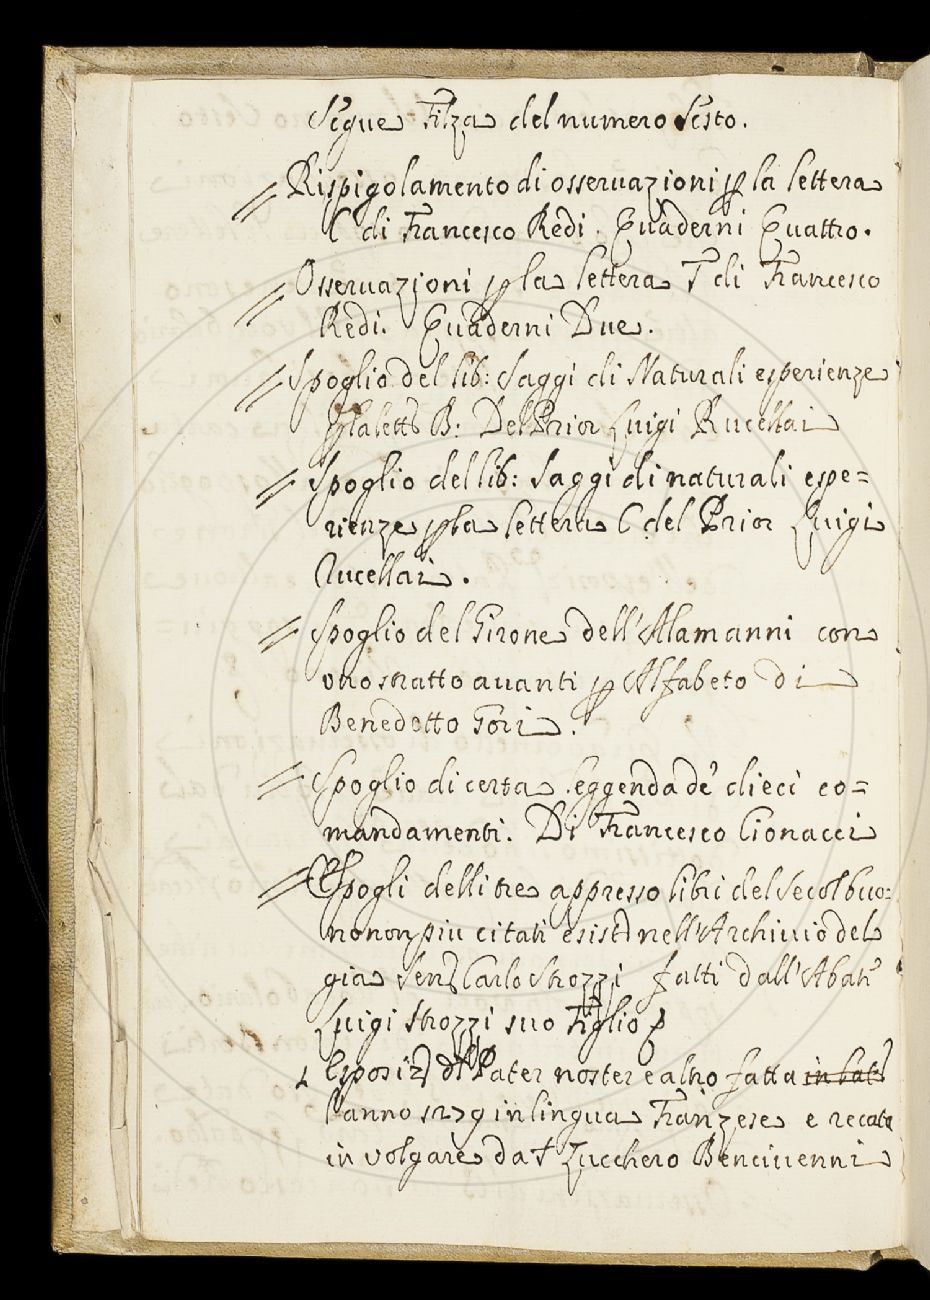 Segue Filza del numero Sesto.
Rispigolamento di osseruazioni ꝑ la lettera
C di Francesco Redi. Quaderni Quattro.
Osseruazioni ꝑ la lettera T di Francesco
Redi. Quaderni Due.
Spoglio del lib: Saggi di Naturali esperienze
B: Del Prior Luigi Rucellai
Spoglio del lib: Saggi di naturali espe=
rienze ꝑ la lettera C del Prior Luigi
Rucellai.
Spoglio del Girone dell'Alamanni con
vno stratto auanti ꝑ Alfabeto di
Benedetto Gori.
Spoglio di certa leggenda de' dieci co=
mandamenti. Di Francesco Cionacci
Spogli delli tre appresso libri del Secol buo=
no non piu citati nell'Archiuio del
gia Carlo Strozzi fatti dall'Abate
Luigi Strozzi suo Figlio
Pater noster e altro fatta
l'anno 1279 in lingua Franzese e recata
in volgare da Zucchero Benciuenni